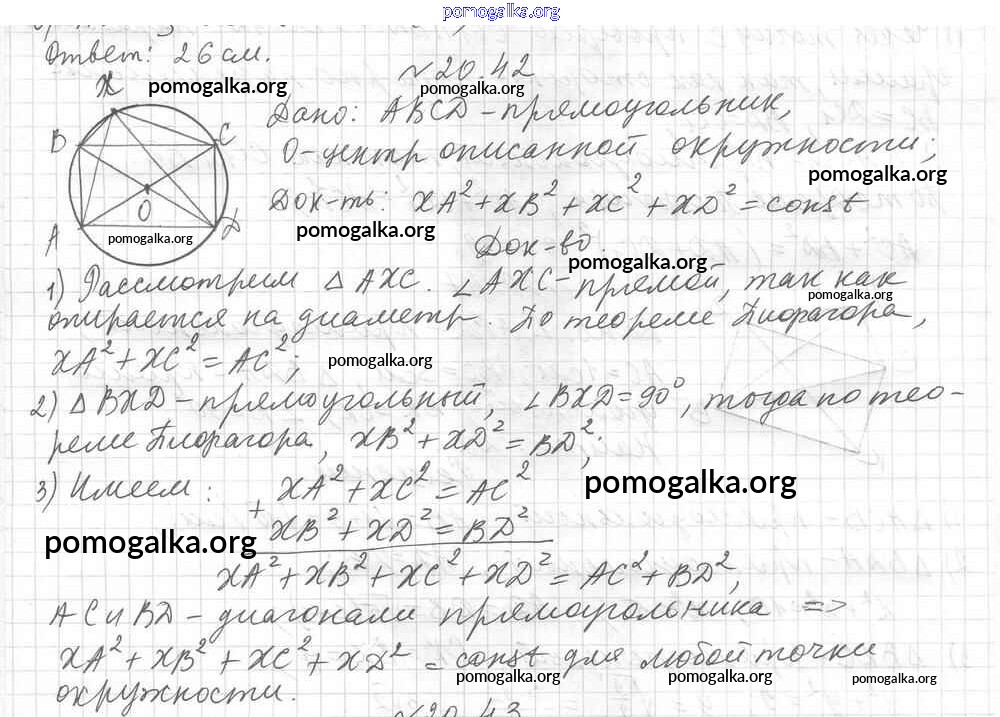 pomogalka.org
Ответ: 26 см.
№ 20.42
pomogalka.org
pomogalka.org
X
B
C
O
A
D
pomogalka.org
Дано: ABCD – прямоугольник,
O – центр описанной окружности;
pomogalka.org
Док-ть: XA² + XB² + XC² + XD² = const
pomogalka.org
Док-во.
pomogalka.org
1) Рассмотрим △ AXC. ∠AXC – прямой, так как
pomogalka.org
опирается на диаметр. По теореме Пифагора,
XA² + XC² = AC²;
pomogalka.org
2) △ BXD – прямоугольный, ∠BXD = 90°, тогда по тео-
реме Пифагора, XB² + XD² = BD²;
3) Имеем: XA² + XC² = AC²
pomogalka.org
+
XB² + XD² = BD²
pomogalka.org
XA² + XB² + XC² + XD² = AC² + BD²,
AC и BD – диагонали прямоугольника =>
XA² + XB² + XC² + XD² = const для любой точки
pomogalka.org
pomogalka.org
pomogalka.org
окружности.
№20.43